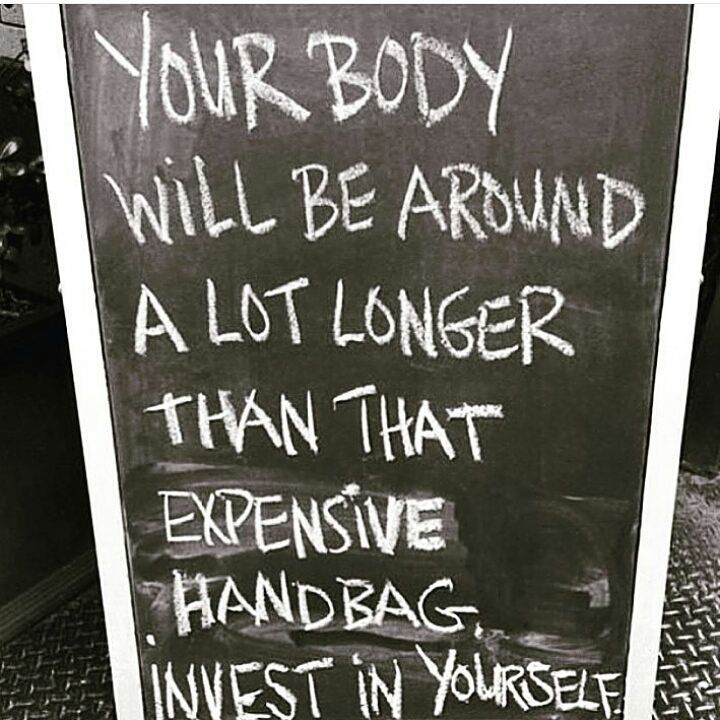 YOUR BODY
WILL BE AROUND
A LOT LONGER
THAN THAT
EXPENSIVE
HANDBAG.
INVEST IN YOURSELF.